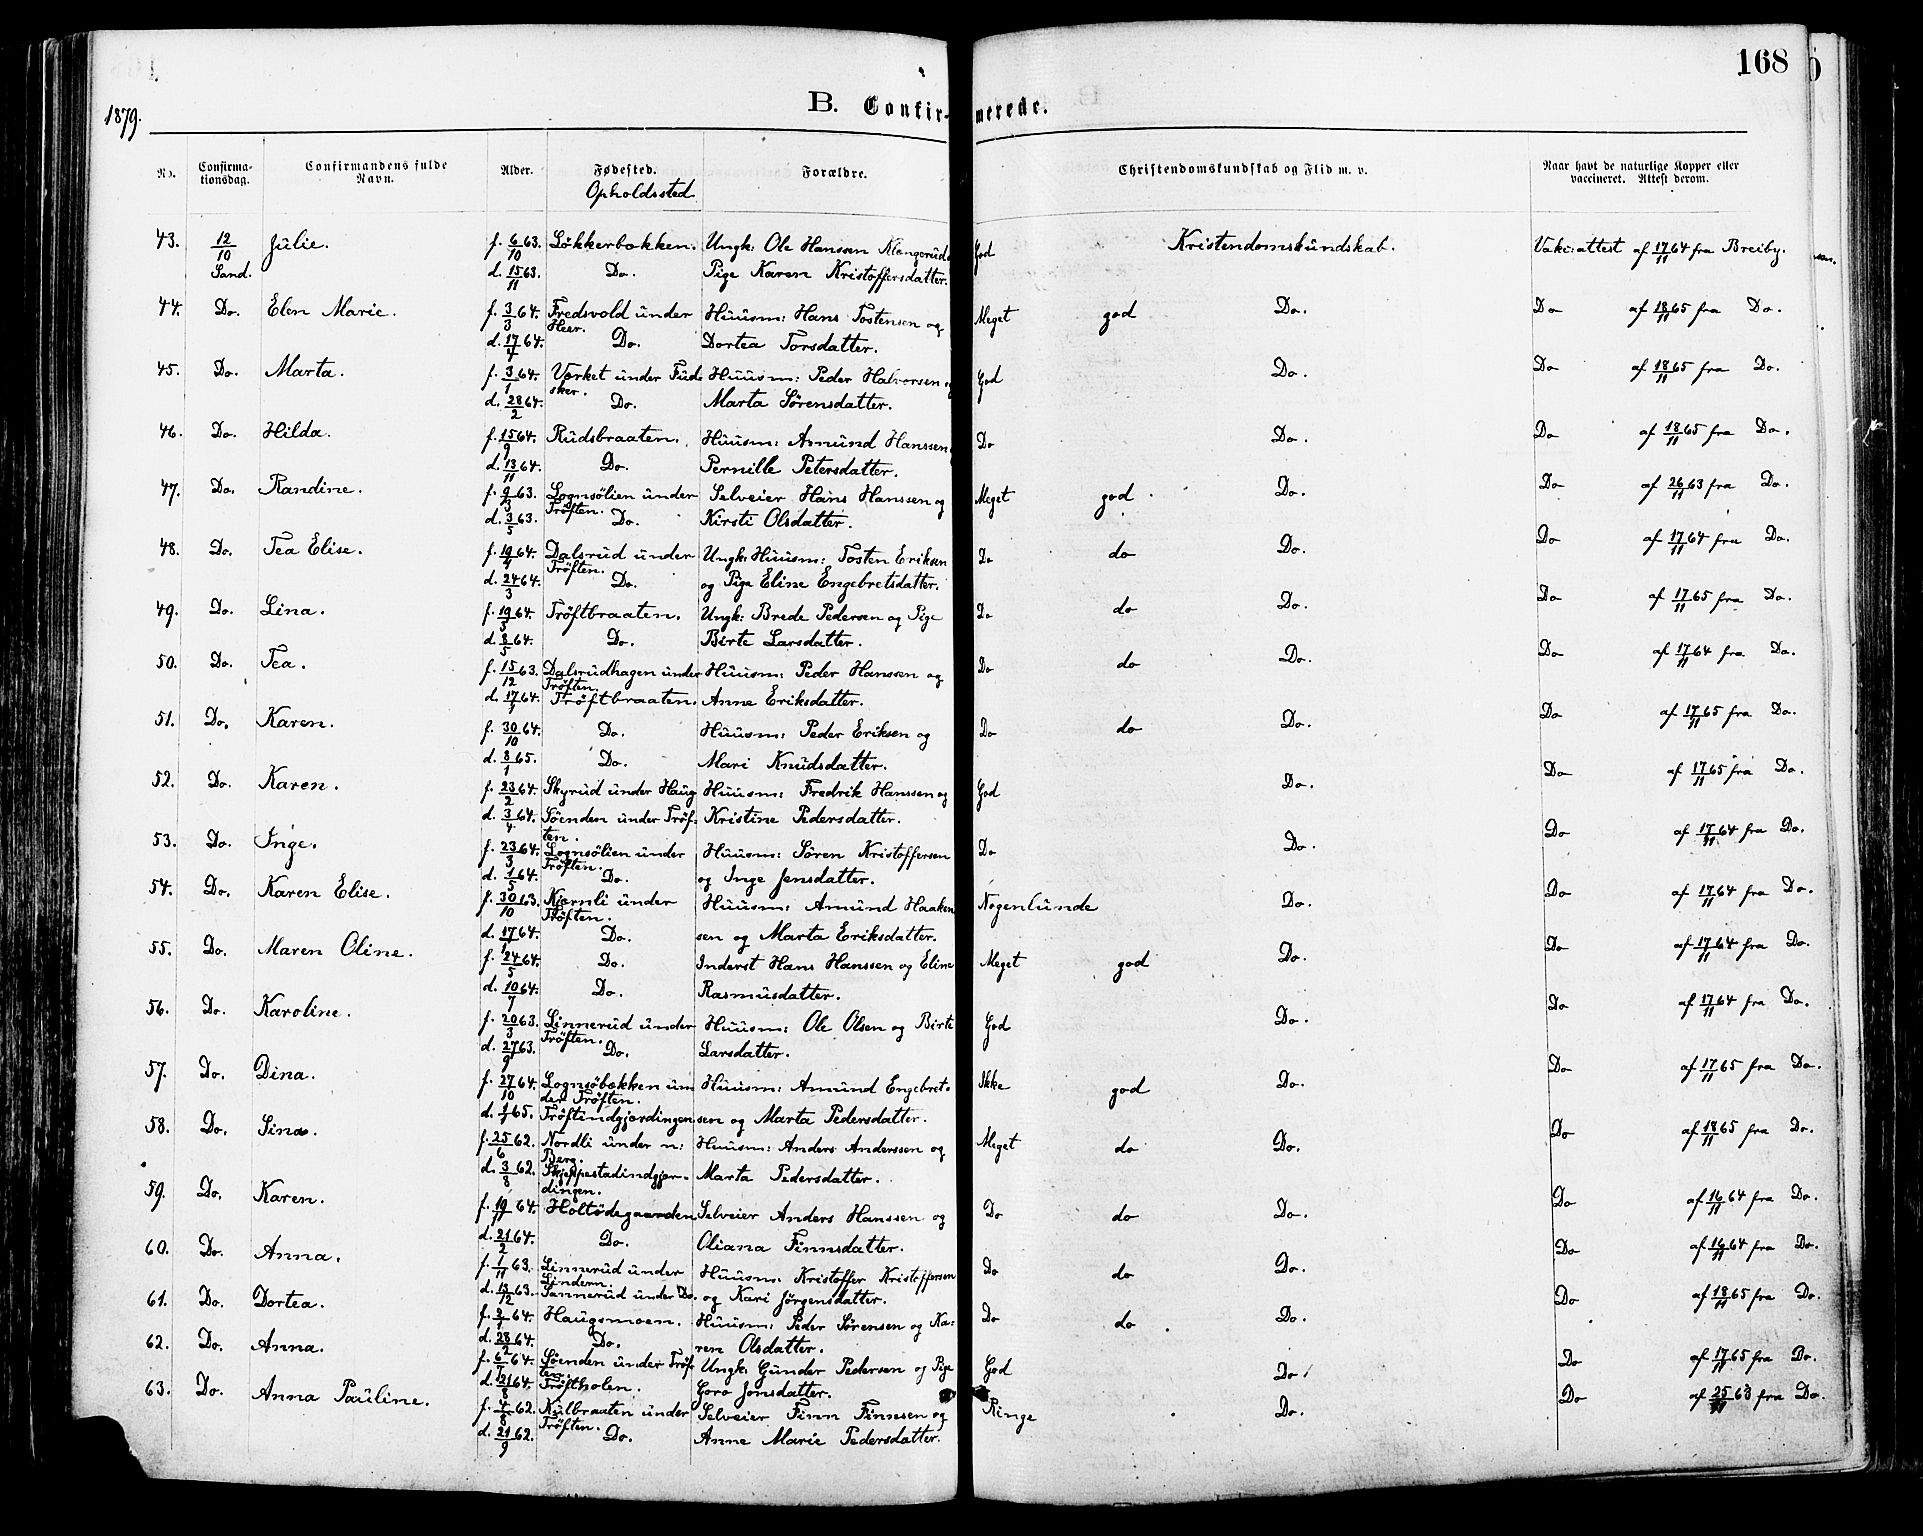 168
B. Confir-merede.
1879.
No. Confirma-tionsdag. Confirmandens fulde Navn. Alder. Fødested. Forældre. Christendomskundskab og Flid m. v. Naar havt de naturlige Kopper eller vaccineret. Attest derom.
Opholdssted
43. 12/10 Julie. f. 6/10 63. Løkkerbakken. Ungk: Ole Hanssen Klangerud God Kristendomskundskab. Vakc:attest af 17/11 64 fra Breiby.
Sand. d. 15/11 63. Do. Pige Karen Kristoffersdatter.
44. Do. Elen Marie. f. 3/3 64. Fredsvold under Heer. Huusm: Hans Tostensen og Meget god Do. Do af 18/11 65 fra Do.
d. 17/4 64. Do. Dortea Torsdatter.
45. Do. Marta. f. 3/1 64. Værket under Fudsker. Huusm: Peder Halvorsen og God Do. Do af 18/11 65 fra Do.
d. 28/2 64. Do. Marta Sørensdatter.
46. Do. Hilda. f. 15/9 64. Rudsbraaten. Huusm: Amund Hanssen Do Do. Do af 18/11 65 fra Do.
d. 13/11 64. Do. Pernille Petersdatter.
47. Do. Randine. f. 9/3 63. Lognsølien under Trøften. Selveier Hans Hanssen og Meget god Do. Do af 26/11 63 fra Do.
d. 3/5 63. Do. Kirsti Olsdatter.
48. Do. Tea Elise. f. 19/ 64. Dalsrud under Trøften. Ungk: Huusm: Tosten Eriksen Do do Do. Do af 17/11 64 fra Do.
d. 24/3 64. Do. og Pige Eline Engebretsdatter.
49. Do. Lina. f. 19/ 64. Trøftbraaten. Ungk: Brede Pedersen og Pige Do do Do. Do af 17/11 65 fra Do.
d. 8/5 64. Do. Birte Larsdatter.
50. Do. Tea. f. 15/12 63. Dalsrudhagen under Trøften. Huusm: Peder Hanssen og Do do Do. Do af 17/11 64 fra Do.
d. 17/ 64. Trøftbraaten. Anne Eriksdatter.
51. Do. Karen. f. 30/10 64. Do. Huusm: Peder Eriksen og Do do Do. Do af 17/11 65 fra Do.
d. 8/1 65. Do. Mari Knudsdatter.
52. Do. Karen. f. 23/2 64. Skyrud under Haug Huusm: Fredrik Hanssen og God Do. Do af 17/11 65 fra Do.
d. 3/4 64. Søenden under Trøften. Kristine Pedersdatter.
53. Do. Inge. f. 23/3 64. Lognsølien under Trøften. Huusm: Søren Kristoffersen Do Do. Do af 17/11 64 fra Do.
d. 1/5 64. Do. og Inge Jensdatter.
54. Do. Karen Elise. f. 30/10 63. Kjernli under Trøften. Huusm: Amund Haaken Nogenlunde Do. Do af 17/11 64 fra Do.
d. 17/ 64. Do. sen og Marta Eriksdatter.
55. Do. Maren Oline. f. 24/5 64. Do. Inderst Hans Hanssen og Eline Meget god Do. Do af 17/11 64 fra Do.
d. 10/7 64. Do. Rasmusdatter.
56. Do. Karoline. f. 20/3 63. Linnerud under Trøften. Huusm: Ole Olsen og Birte God Do. Do af 17/11 64 fra Do.
d. 27/9 63. Do. Larsdatter.
57. Do. Dina. f. 27/10 64. Lognsøbakken under Trøften. Huusm: Amund Engebret- Ikke god Do. Do af 17/11 65 fra Do.
d. 1/1 65. Trøftindgjærdingen sen og Marta Pedersdatter.
58. Do. Sina. f. 25/6 62. Nordli under n: Berg. Huusm: Anders Anderssen og Meget do Do. Do af 18/11 65 fra Do.
d. 3/8 62. Skjeppestadindgjærdingen. Marta Pedersdatter.
59. Do. Karen. f. 19/ 64. Holtødegaarden Selveier Anders Hanssen og Do do Do. Do af 16/11 64 fra Do.
d. 21/2 64. Do. Oliana Finnsdatter.
60. Do. Anna. f. 1/11 63. Linnerud under Lindern. Huusm: Kristoffer Kristoffersen Do do Do. Do af 16/11 64 fra Do.
d. 13/12 63. Sannerud under Do. og Kari Jørgensdatter.
61. Do. Dortea. f. 2/1 64. Haugsmoen. Huusm: Peder Sørensen og Ka- Do do Do. Do af 18/11 65 fra Do.
d. 28/2 64. Do. ren Olsdatter.
62. Do. Anna. f. 6/7 64. Søenden under Trøften. Ungk: Gunder Pedersen og Pige God Do. Do af 17/11 65 fra Do.
d. 21/8 64. Trøftholen. Goro Jonsdatter.
63. Do. Anna Pauline. f. 4/8 62. Nulbraaten under Trøften. Selveier Finn Finnsen og Ringe Do. Do af 25/ 63 fra Do.
d. 21/9 62. Do. Anne Marie Pedersdatter.